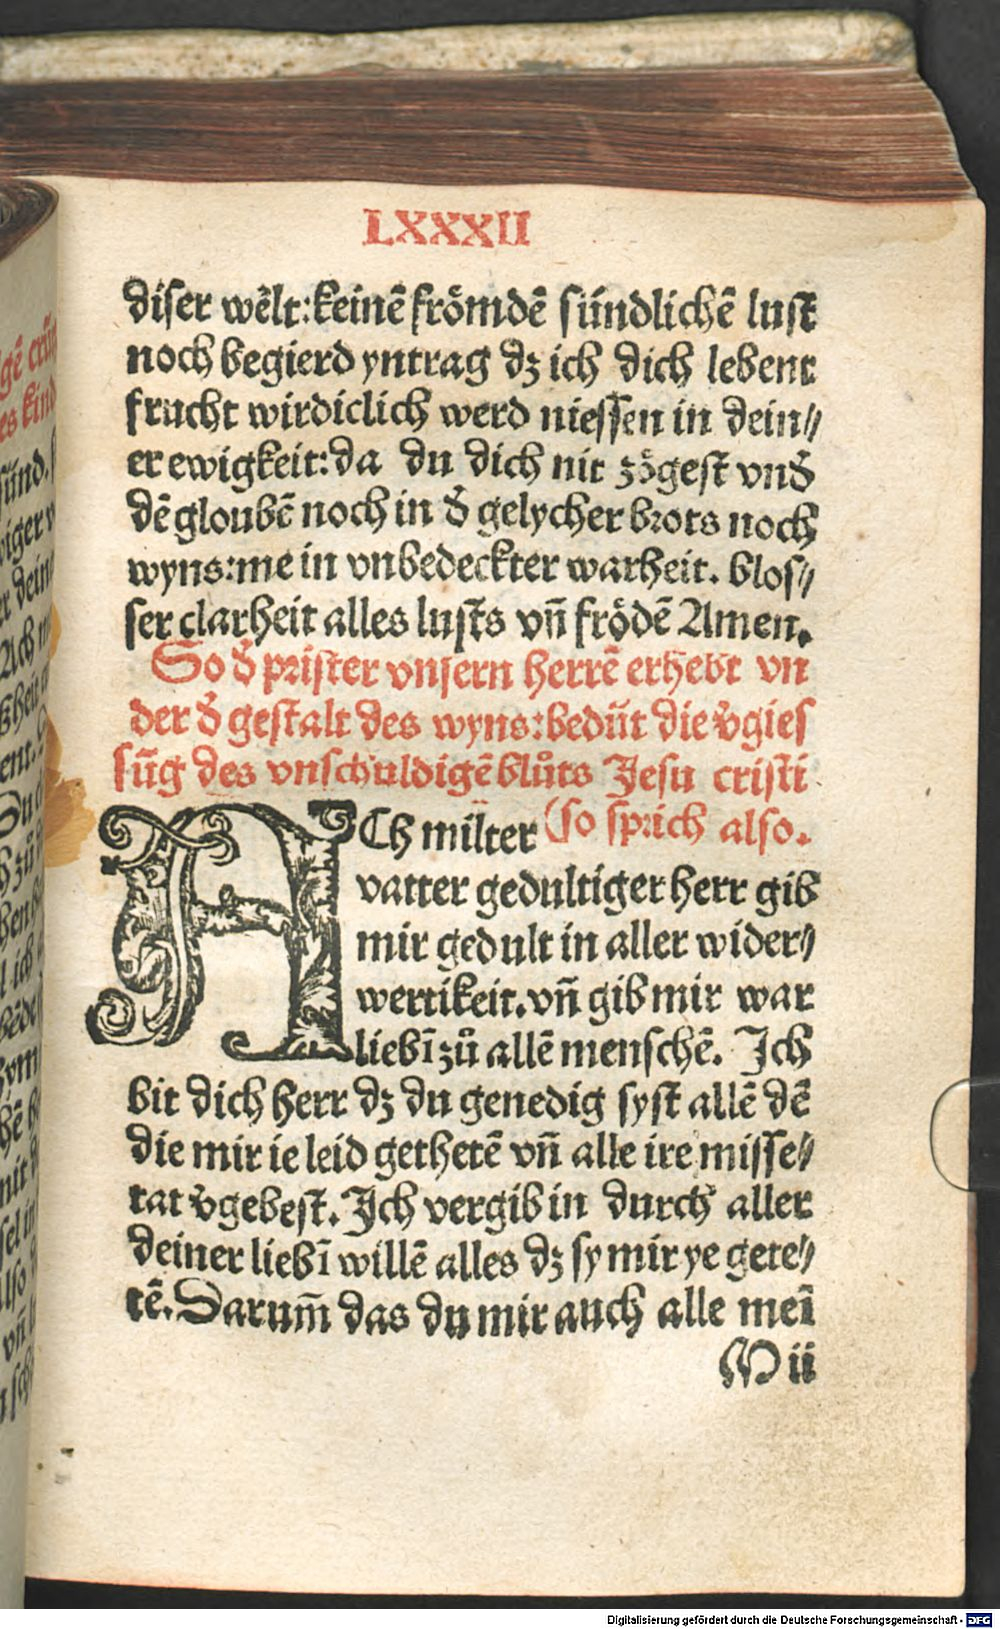 LXXXII
diser wẽlt: keinẽ frömdẽ súndlichẽ lust
noch begierd yntrag dʒ ich dich lebent
frucht wirdiclich werd niessen in dein⸗
er ewigkeit: da du dich nit zögest vnď
dẽ gloubẽ noch in ď gelycher brots noch
wyns: me in vnbedeckter warheit. blos⸗
ser clarheit alles lusts vñ frödẽ Amen.
So ď prister vnsern herrẽ erhebt vn
der ď gestalt des wyns: bedüt die v̕gies
sũg des vnschuldigẽ blůts Jesu cristi
(so sprich also.
ACh milter
vatter gedultiger herr gib
mir gedult in aller wider⸗
wertikeit. vñ gib mir war
liebĩ zů allẽ menschẽ. Ich
bit dich herr dʒ du genedig syst allẽ dẽ
die mir ie leid gethetẽ vñ alle ire misse⸗
tat v̕gebest. Ich vergib in durch aller
deiner liebĩ willẽ alles dʒ sy mir ye gete⸗
tẽ. Darum̃ das du mir auch alle meĩ
M ii
Digitalisierung gefördert durch die Deutsche Forschungsgemeinschaft - DFG